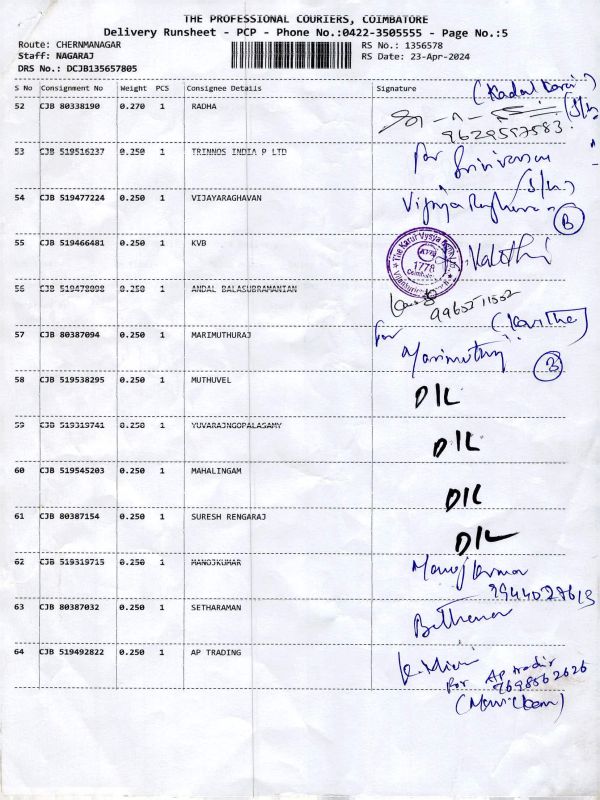 THE PROFESSIONAL COURIERS, COIMBATORE
Delivery Runsheet - PCP - Phone No.:0422-3505555 - Page No.:5
Route: CHERNMANAGAR RS No.: 1356578
Staff: NAGARAJ RS Date: 23-Apr-2024
DRS No.: DCJB135657805
S No Consignment No Weight PCS Consignee Details Signature
52 CJB 80338190 0.270 1 RADHA
9629597583
53 CJB 519516237 0.250 1 TRINNOS INDIA P LTD
For Srinivasan
54 CJB 519477224 0.250 1 VIJAYARAGHAVAN
B
55 CJB 519466481 0.250 1 KVB
1778
56 CJB 519478098 0.250 1 ANDAL BALASUBRAMANIAN
9965271552
57 CJB 80387094 0.250 1 MARIMUTHURAJ (Kavitha)
for
Marimuthu B
58 CJB 519538295 0.250 1 MUTHUVEL D/L
59 CJB 519319741 0.250 1 YUVARAJNGOPALASAMY D/L
60 CJB 519545203 0.250 1 MAHALINGAM D/L
61 CJB 80387154 0.250 1 SURESH RENGARAJ D/L
62 CJB 519319715 0.250 1 MANOJKUMAR Manoj Kumar
9944027613
63 CJB 80387032 0.250 1 SETHARAMAN
64 CJB 519492822 0.250 1 AP TRADING
For AP tradir
9698562626